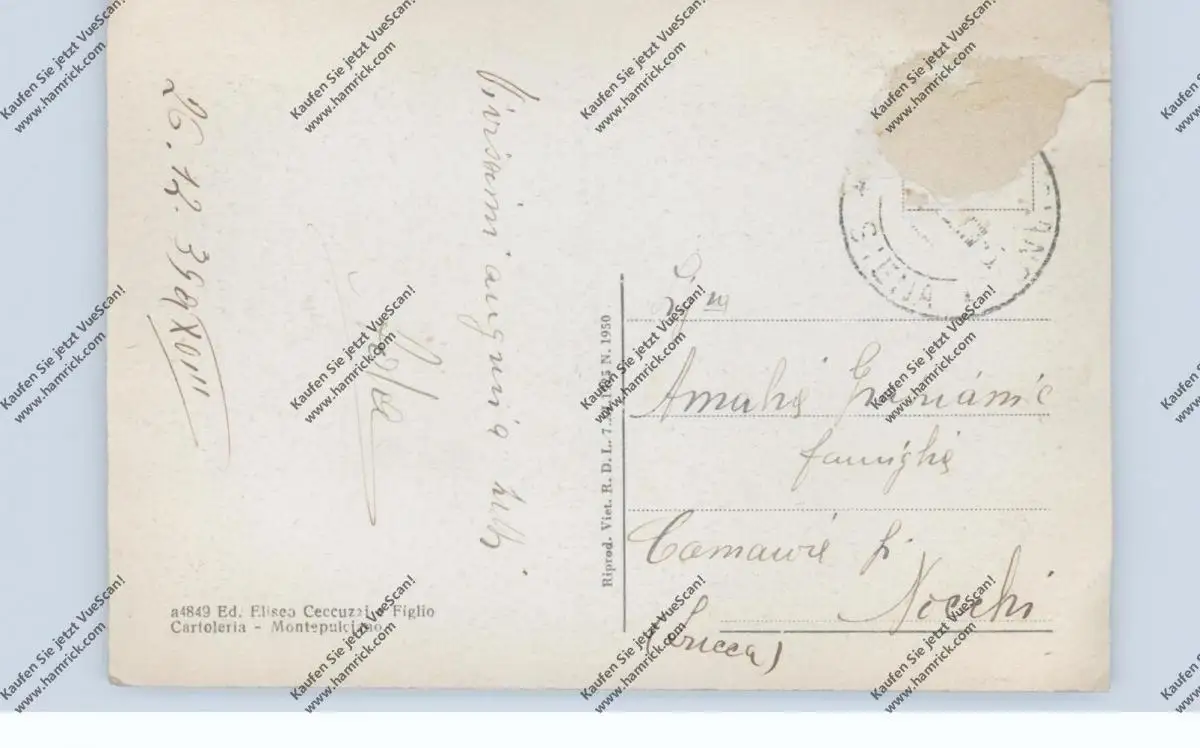 26.12.39 XVIII
Vivissimi auguri a tutti
a4849 Ed. Eliseo Ceccuzzi e Figlio
Cartoleria - Montepulciano
Riprod. Viet. R. D. L. 7 N. 1950
SIENA
famiglia
Camaiore pi
Nocchi
(Lucca)
Kaufen Sie jetzt VueScan!
www.hamrick.com